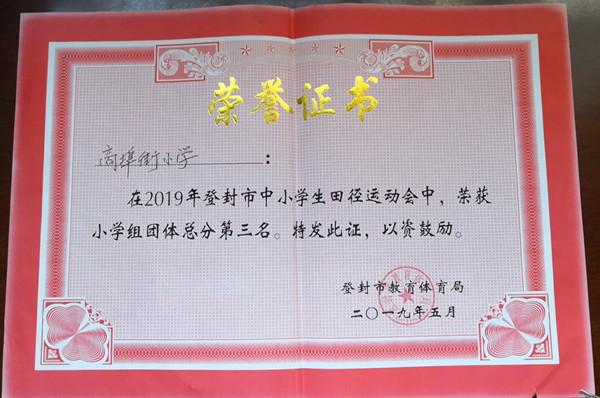 荣誉证书
嵩阜街小学：
在2019年登封市中小学生田径运动会中，荣获
小学组团体总分第三名。特发此证，以资鼓励。
登封市教育体育局
二〇一九年五月